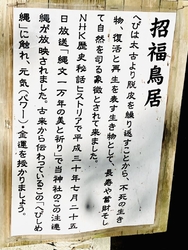 招福鳥居
へびは太古より脱皮を繰り返すことから、不死の生き
物、復活と再生を表す生き物として、長寿や蓄財そし
て吉凶を司る象徴とされて来ました。
NHK歴史秘話ヒストリアで平成三十年七月二十五
日放送「縄文一万年の美と祈り」で当神社のこの注連
縄が放映されました。古来から伝わっているこの「へびしめ
縄」に触れ、元気（パワー）・金運を授かりましょう。